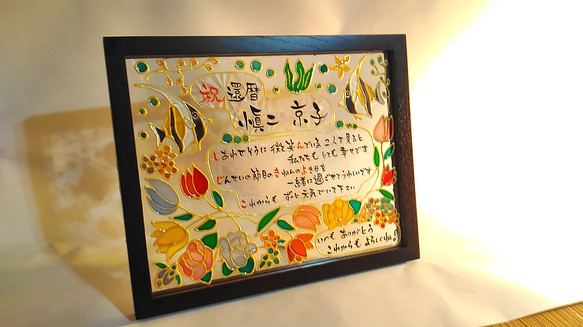 祝 還暦
慎二 京子
しあわせそうに 微笑んでいる 二人を見ると
私たちも とても 幸せです
じんせいの節目のきねんのよき日を
一緒に過ごせてうれしいです
これからも ずっと 元気でいて下さい
いつも ありがとう
これからも よろしくね!